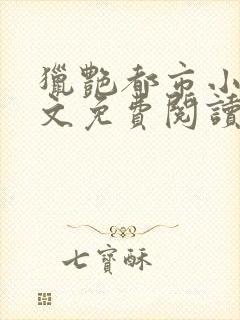 獵艷都市小
文免費閱讀
七寶酥